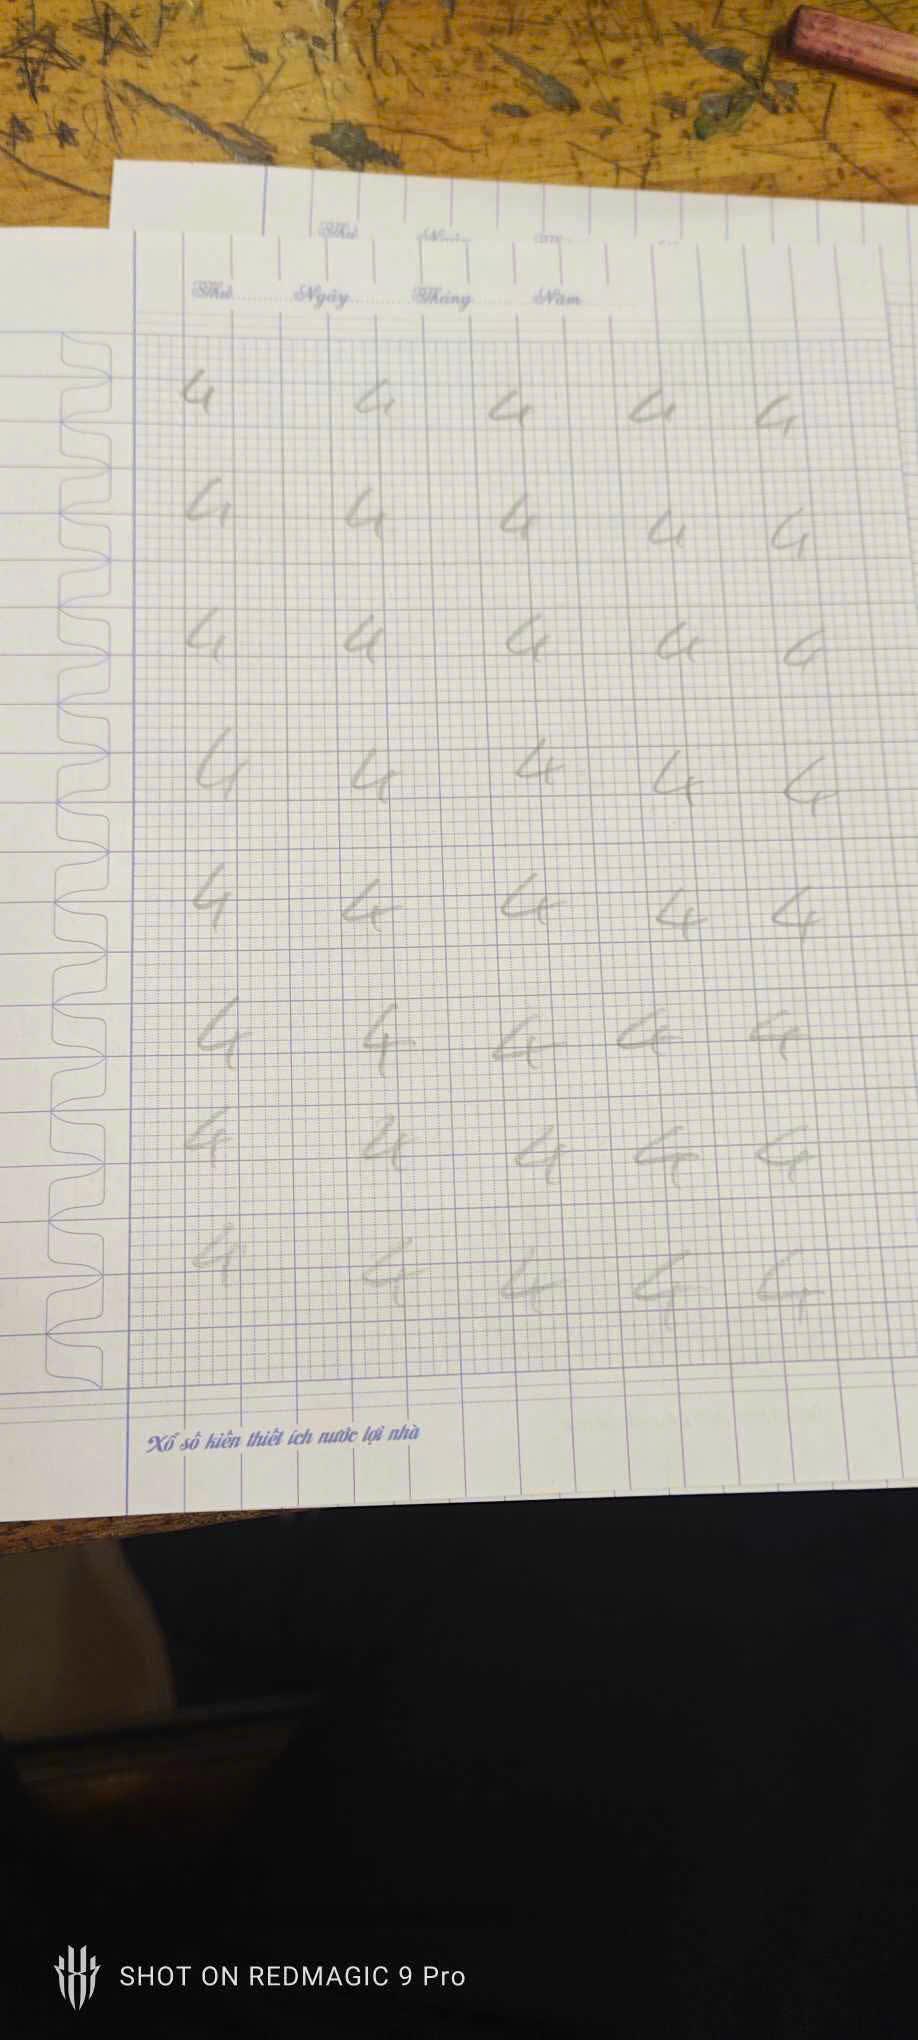 Thứ Ngày Tháng Năm
4 4 4 4 4
4 4 4 4 4
4 4 4 4 4
4 4 4 4 4
4 4 4 4 4
4 4 4 4 4
4 4 4 4 4
4 4 4 4 4
Xổ số kiến thiết ích nước lợi nhà
SHOT ON REDMAGIC 9 Pro